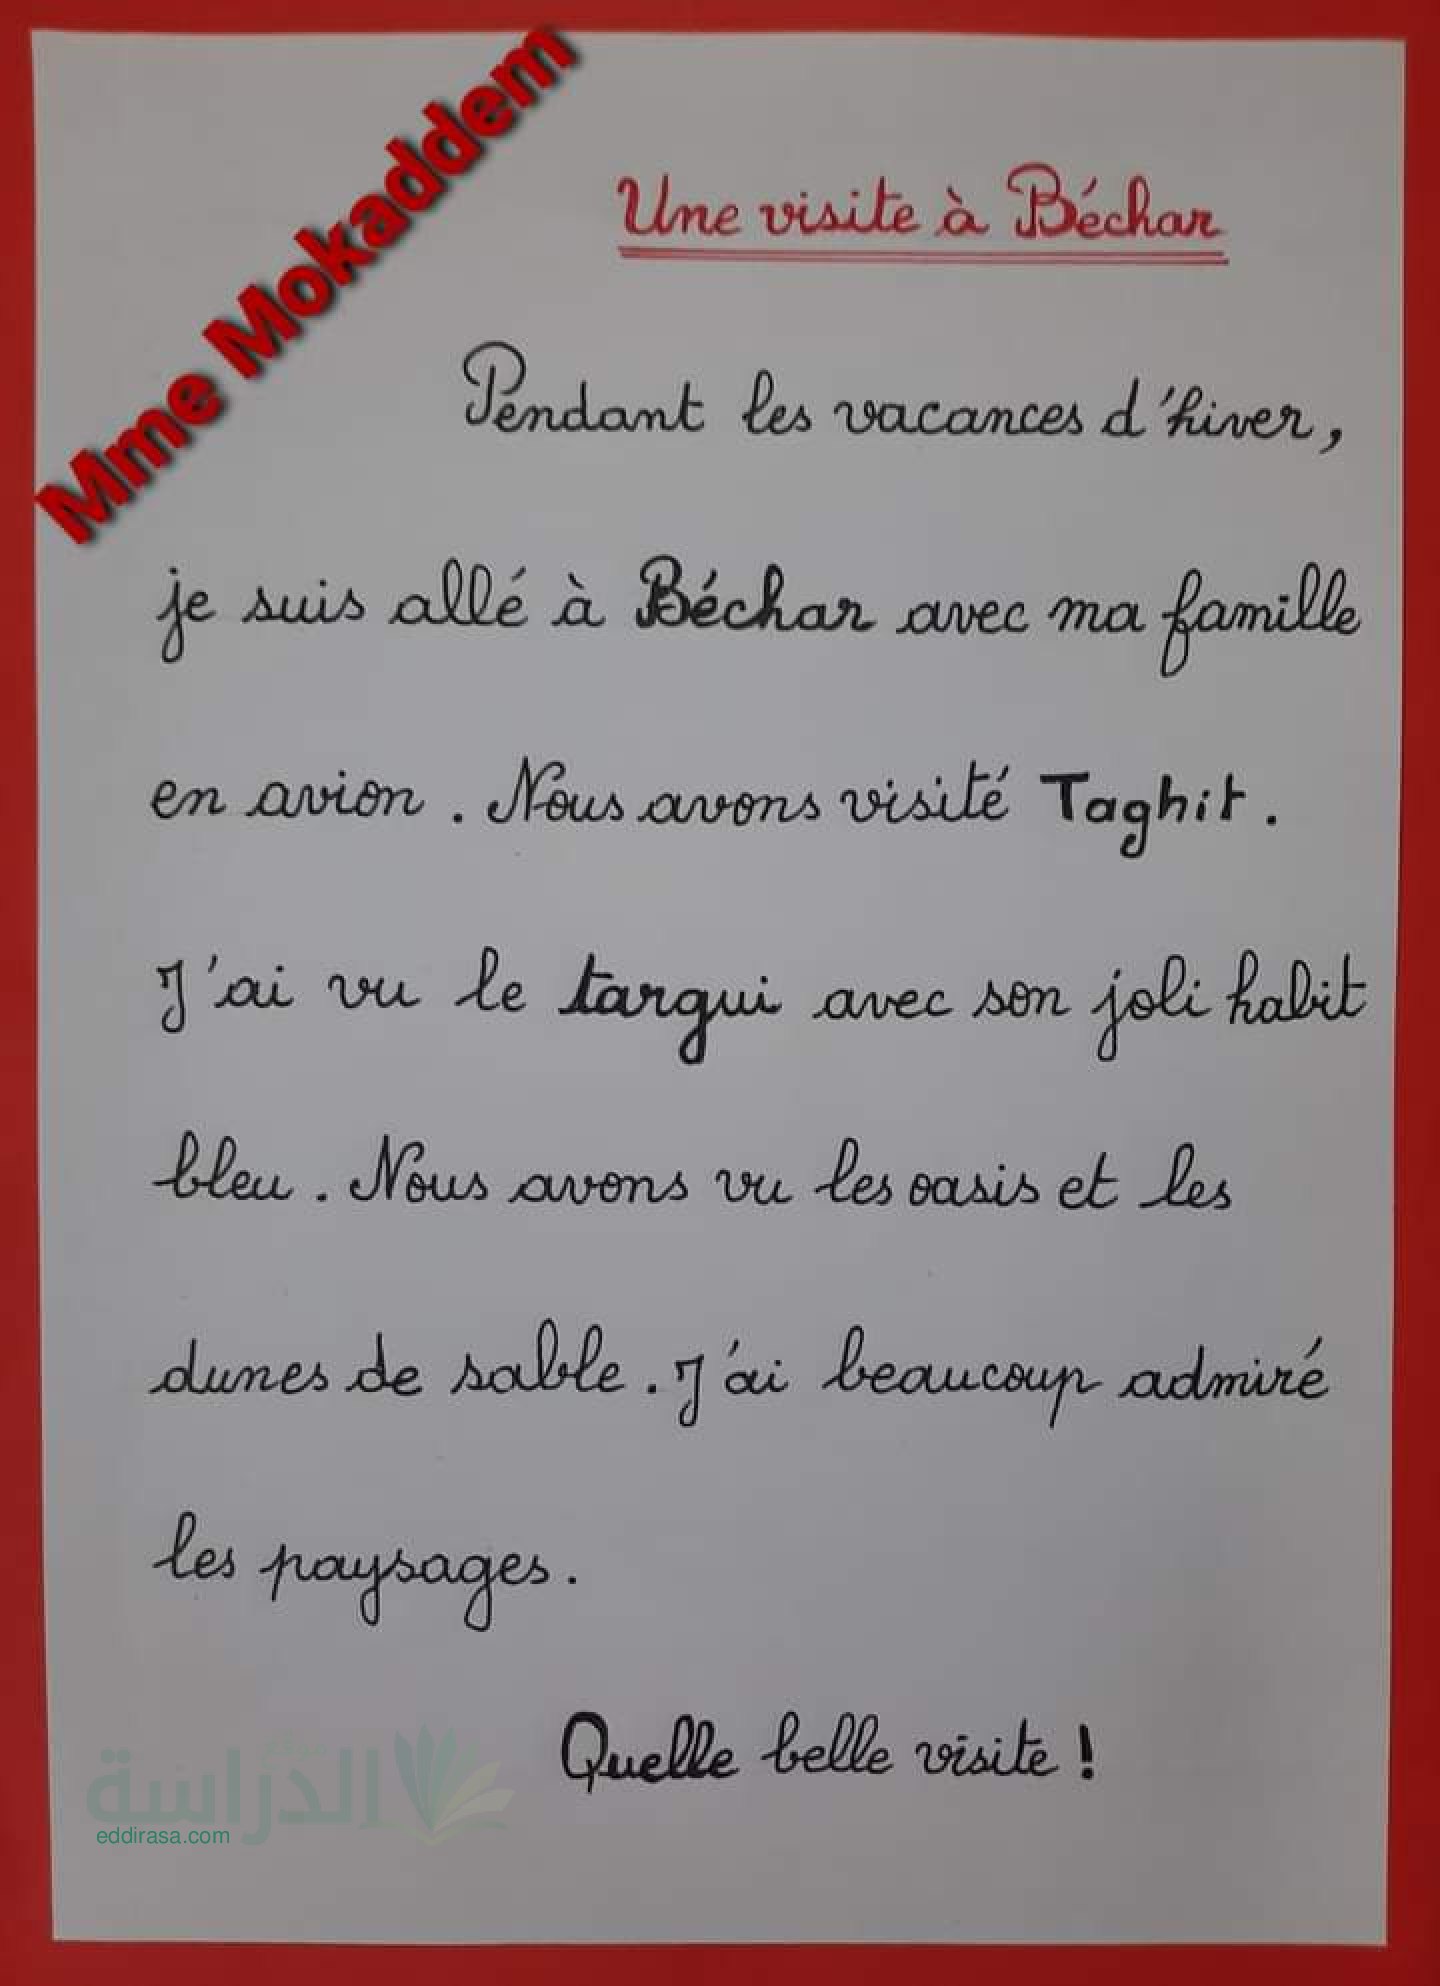 Mme Mokaddem
Une visite à Béchar
Pendant les vacances d'hiver,
je suis allé à Béchar avec ma famille
en avion. Nous avons visité Taghit.
J'ai vu le targui avec son joli habit
bleu. Nous avons vu les oasis et les
dunes de sable. J'ai beaucoup admiré
les paysages.
Quelle belle visite !
موقع
الدراسة
eddirasa.com